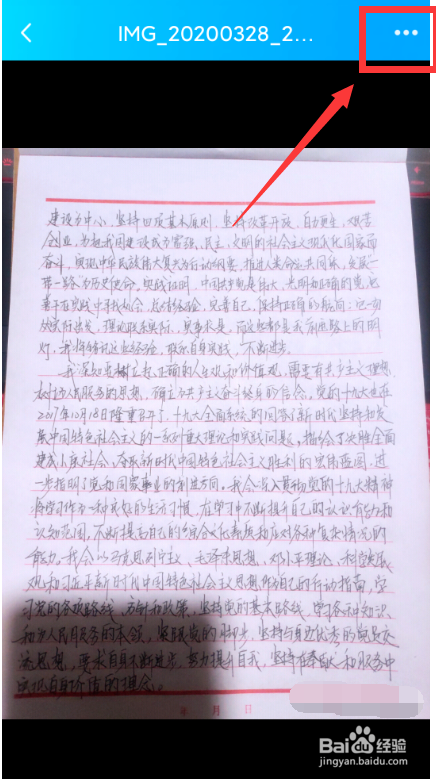 IMG_20200328_2...
建设为中心、坚持四项基本原则、坚持改革开放、自力更生、艰苦
创业,为把我国建设成为富强、民主、文明的社会主义现代化国家而
奋斗。实现中华民族伟大复兴为行动纲领,推进人类命运共同体,发展一
带一路为历史使命。实践证明,中国共产党是伟大、光明和正确的党,也
在实践中 总结经验,完善自己,保持正确的航向;它一切
从实际出发,理论联系实际,实事求是,而这也都是我前进路上的明
灯,我将铭记这些经验,联系自身实践,不断进步。
我深知要树立起正确的人生观和价值观,需要有共产主义理想、
为人民服务的思想,确立为共产主义奋斗终身的信念。党的十九大也在
2017年10月18日隆重召开了,十九大全面系统的回答了新时代坚持和发
展中国特色社会主义的一系列重大理论和实践问题,描绘了决胜全面
建成小康社会、夺取新时代中国特色社会主义胜利的宏伟蓝图,进
一步指明了党和国家事业的前进方向。我会深入贯彻党的十九大精神
将学习作为一种良好的生活习惯,在学习中不断提升自己的认识能力和
认知范围,不断提高自己的综合文化素质和应对各种复杂情况的
能力。我会以马克思列宁主义、毛泽东思想、邓小平理论、科学发展
观和习近平新时代中国特色社会主义思想作为自己的行动指南,学
习党的各项路线、方针和政策,坚持党的基本路线,学习各种知识
和为人民服务的本领,紧跟党的脚步,坚持与身边优秀的党员交
流思想,要求自身不断进步,努力提升自我,坚持在奉献和服务中
实现自身价值的理念。
年 月 日
Baidu经验
jingyan.baidu.com